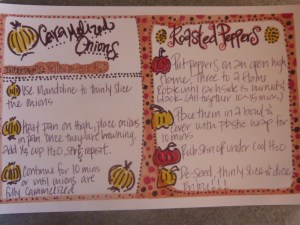 Caramelized
Onions
Use Mandoline to thinly slice
the onions
Heat pan on High, place onions
in pan. Once they are browning,
add ¼ cup H₂O, stir & repeat.
Continue for 10 mins
or until onions are
fully caramelized
Roasted Peppers
Put peppers on an open high
flame! Three to 4 mins
until each side is burnt/
black. (All together 10-15 mins)
Place them in a bowl &
cover with plastic wrap for
10 mins.
Rub skin off under Cool H₂O
De-seed, thinly slice & dice